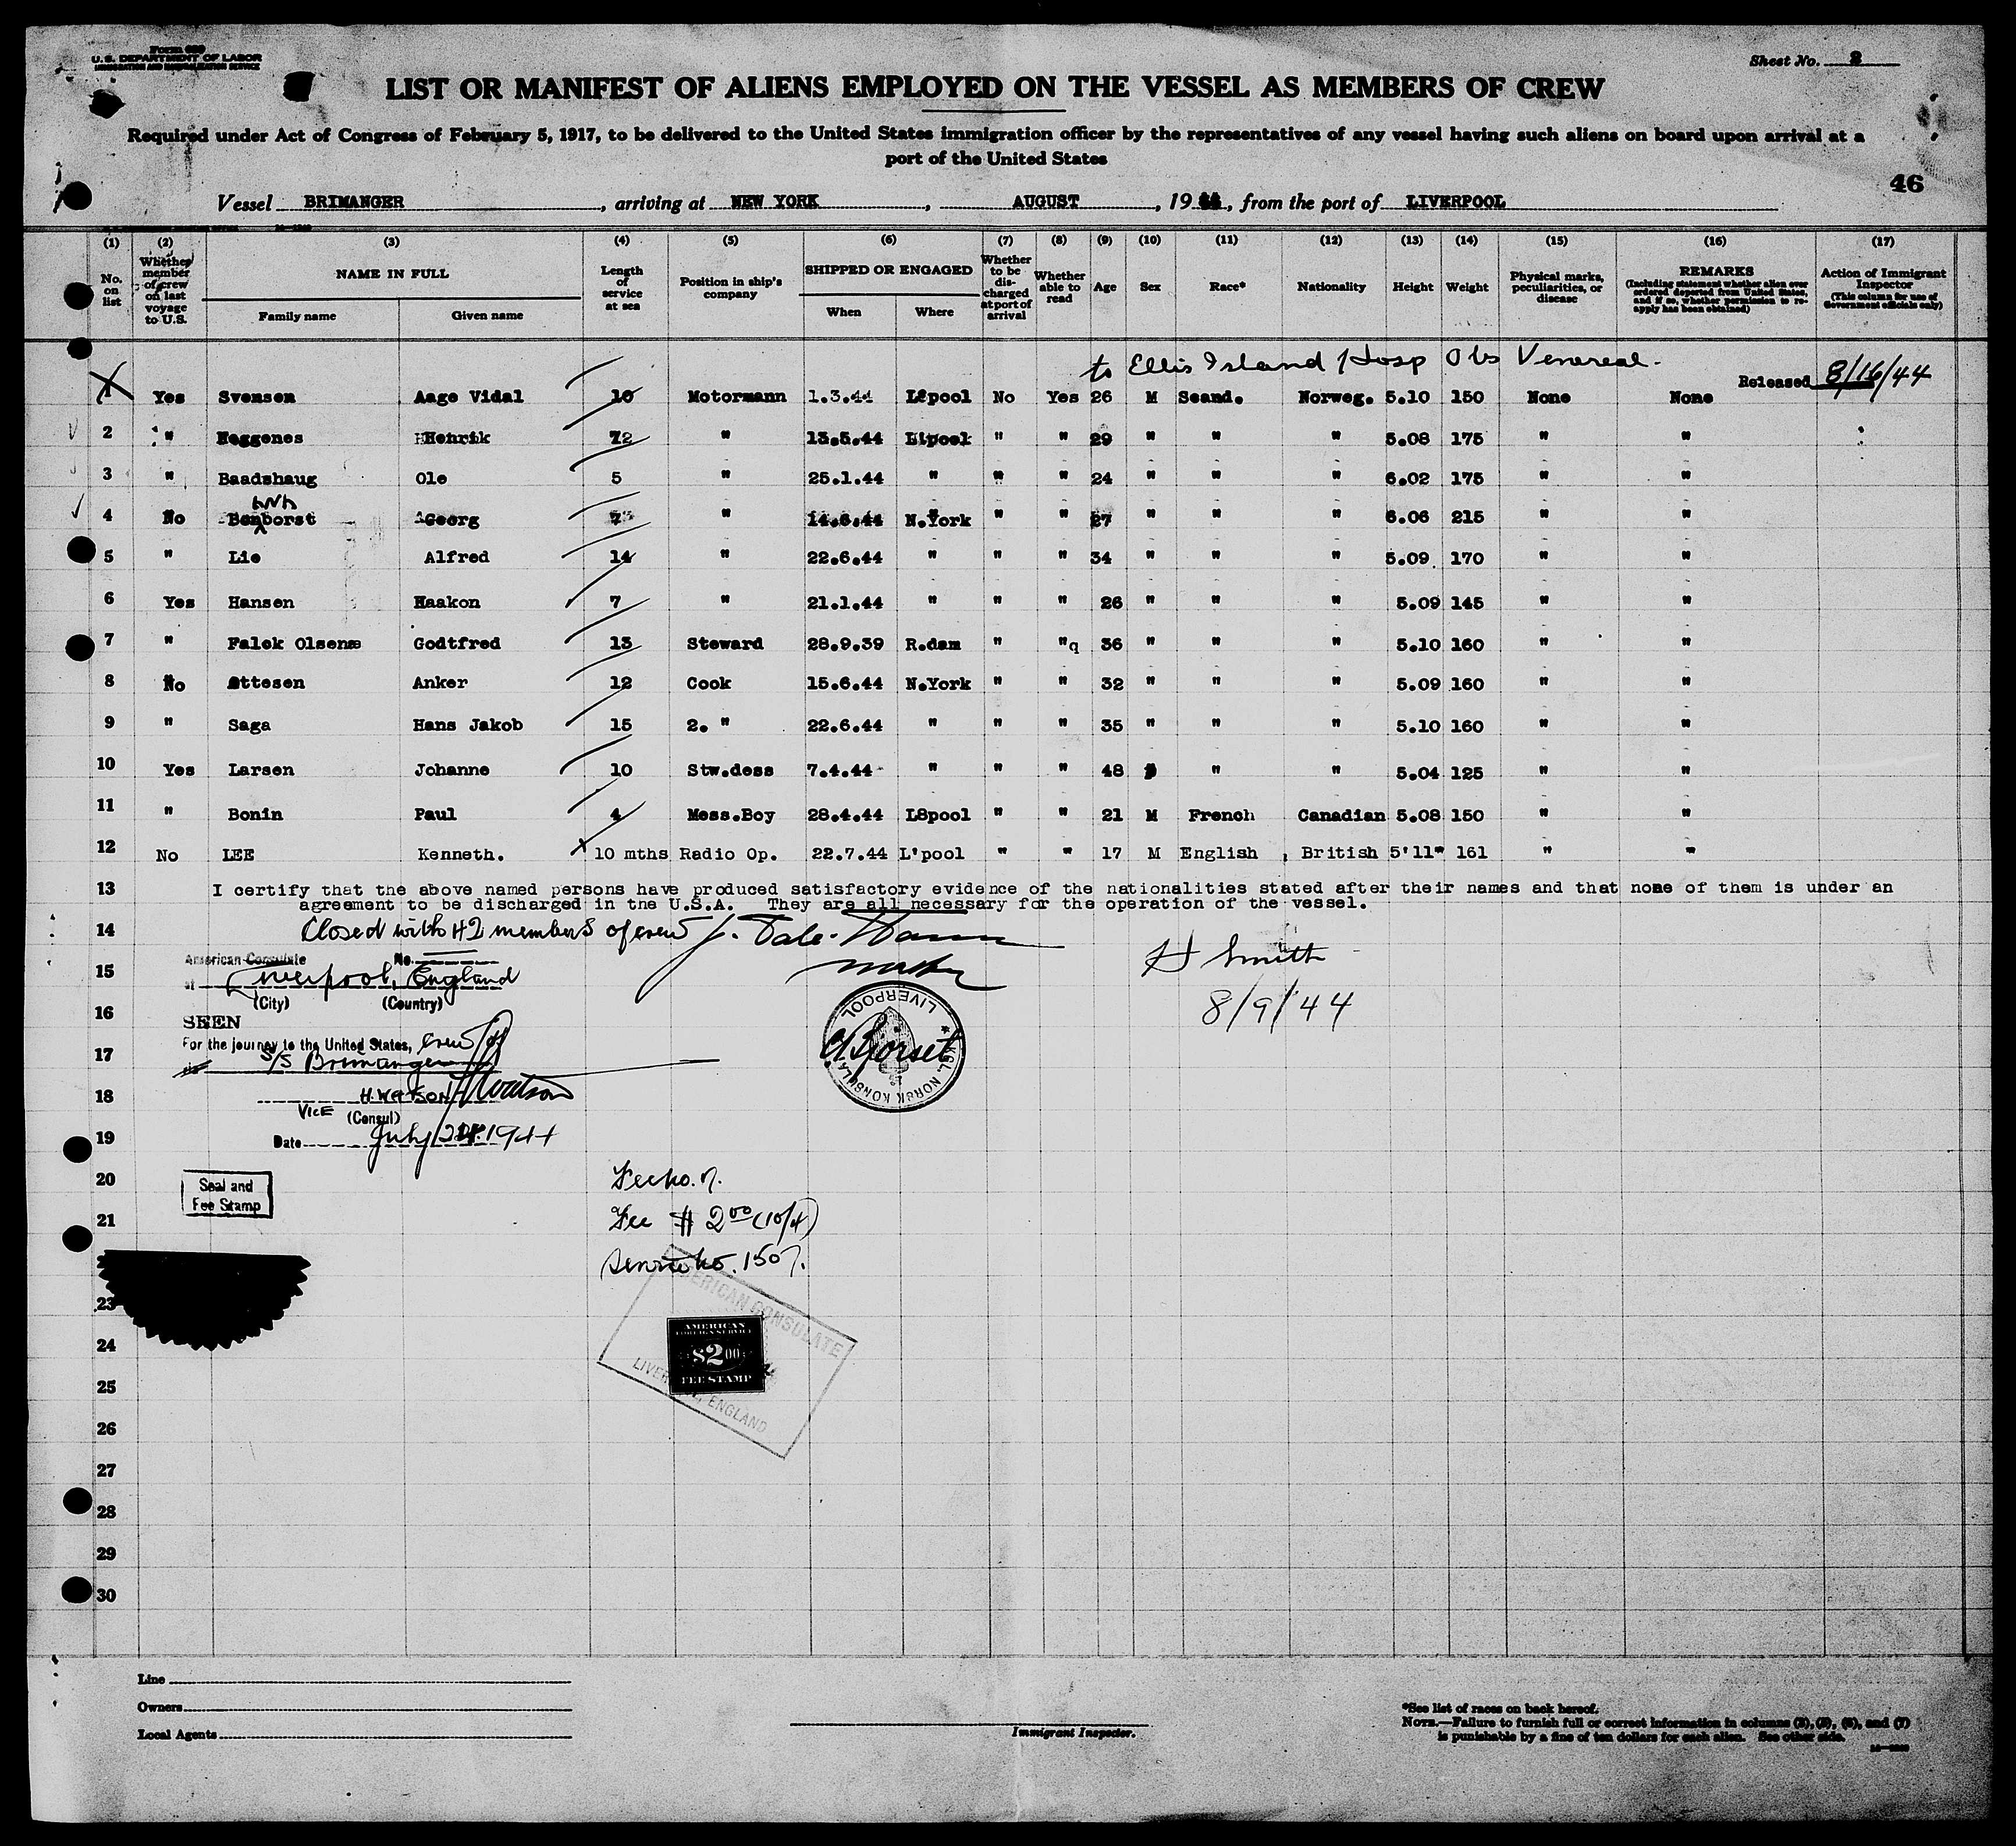 Form 680
U. S. DEPARTMENT OF LABOR
IMMIGRATION AND NATURALIZATION SERVICE
Sheet No. 2
LIST OR MANIFEST OF ALIENS EMPLOYED ON THE VESSEL AS MEMBERS OF CREW
Required under Act of Congress of February 5, 1917, to be delivered to the United States immigration officer by the representatives of any vessel having such aliens on board upon arrival at a
port of the United States
46
Vessel BRIMANGER, arriving at NEW YORK, AUGUST, 1944, from the port of LIVERPOOL
(1) (2) (3) (4) (5) (6) (7) (8) (9) (10) (11) (12) (13) (14) (15) (16) (17)
No. on list
Whether member of crew on last voyage to U.S.
NAME IN FULL
Family name Given name
Length of service at sea
Position in ship's company
SHIPPED OR ENGAGED
When Where
Whether to be discharged at port of arrival
Whether able to read
Age
Sex
Race*
Nationality
Height
Weight
Physical marks, peculiarities, or disease
REMARKS
(Including statement whether alien ever ordered deported from United States, and if so, whether permission to reapply has been obtained)
Action of Immigrant Inspector
(This column for use of Government officials only)
to Ellis Island Hosp Obs Venereal.
Released 8/16/44
1 Yes Svensen Aage Vidal 10 Motormann 1.3.44 L8pool No Yes 26 M Scand. Norweg. 5.10 150 None None
2 " Heggenes Henrik 12 " 13.5.44 L'pool " " 29 " " " 5.08 175 " "
3 " Baadshaug Ole 5 " 25.1.44 " " " 24 " " " 6.02 175 " "
4 No Georg 7 " 14.6.44 N.York " " 27 " " " 6.06 215 " "
5 " Lie Alfred 14 " 22.6.44 " " " 34 " " " 5.09 170 " "
6 Yes Hansen Haakon 7 " 21.1.44 " " " 26 " " " 5.09 145 " "
7 " Falck Olsen Godtfred 13 Steward 28.9.39 R.dam " "q 36 " " " 5.10 160 " "
8 No Ottesen Anker 12 Cook 15.6.44 N.York " " 32 " " " 5.09 160 " "
9 " Saga Hans Jakob 15 2. " 22.6.44 " " " 35 " " " 5.10 160 " "
10 Yes Larsen Johanne 10 Stw.dess 7.4.44 " " " 48 F " " 5.04 125 " "
11 " Bonin Paul 4 Mess.Boy 28.4.44 L8pool " " 21 M French Canadian 5.08 150 " "
12 No LEE Kenneth. 10 mths Radio Op. 22.7.44 L'pool " " 17 M English British 5'11" 161 " "
13 I certify that the above named persons have produced satisfactory evidence of the nationalities stated after their names and that none of them is under an
agreement to be discharged in the U.S.A. They are all necessary for the operation of the vessel.
14 Closed with 42 members of crew
Master
H Smith
8/9/44
15 American Consulate No.
at Liverpool, England
(City) (Country)
16
SEEN
For the journey to the United States, Crew of
17 S/S Brimanger
18 H. WATSON H Watson
VICE (Consul)
19 Date July 24, 1944
LIVERPOOL * KGL. NORSK KONSULAT
20
Seal and
Fee Stamp
Fee $ 2.00 (10/4)
21
Service No. 1507.
23
24
25
26
27
28
29
30
AMERICAN CONSULATE
LIVERPOOL, ENGLAND
AMERICAN
FOREIGN SERVICE
$2.00
FEE STAMP
Line
Owners
Local Agents
Immigrant Inspector.
*See list of races on back hereof.
NOTE.—Failure to furnish full or correct information in columns (3), (5), (6), and (7)
is punishable by a fine of ten dollars for each alien. See other side.